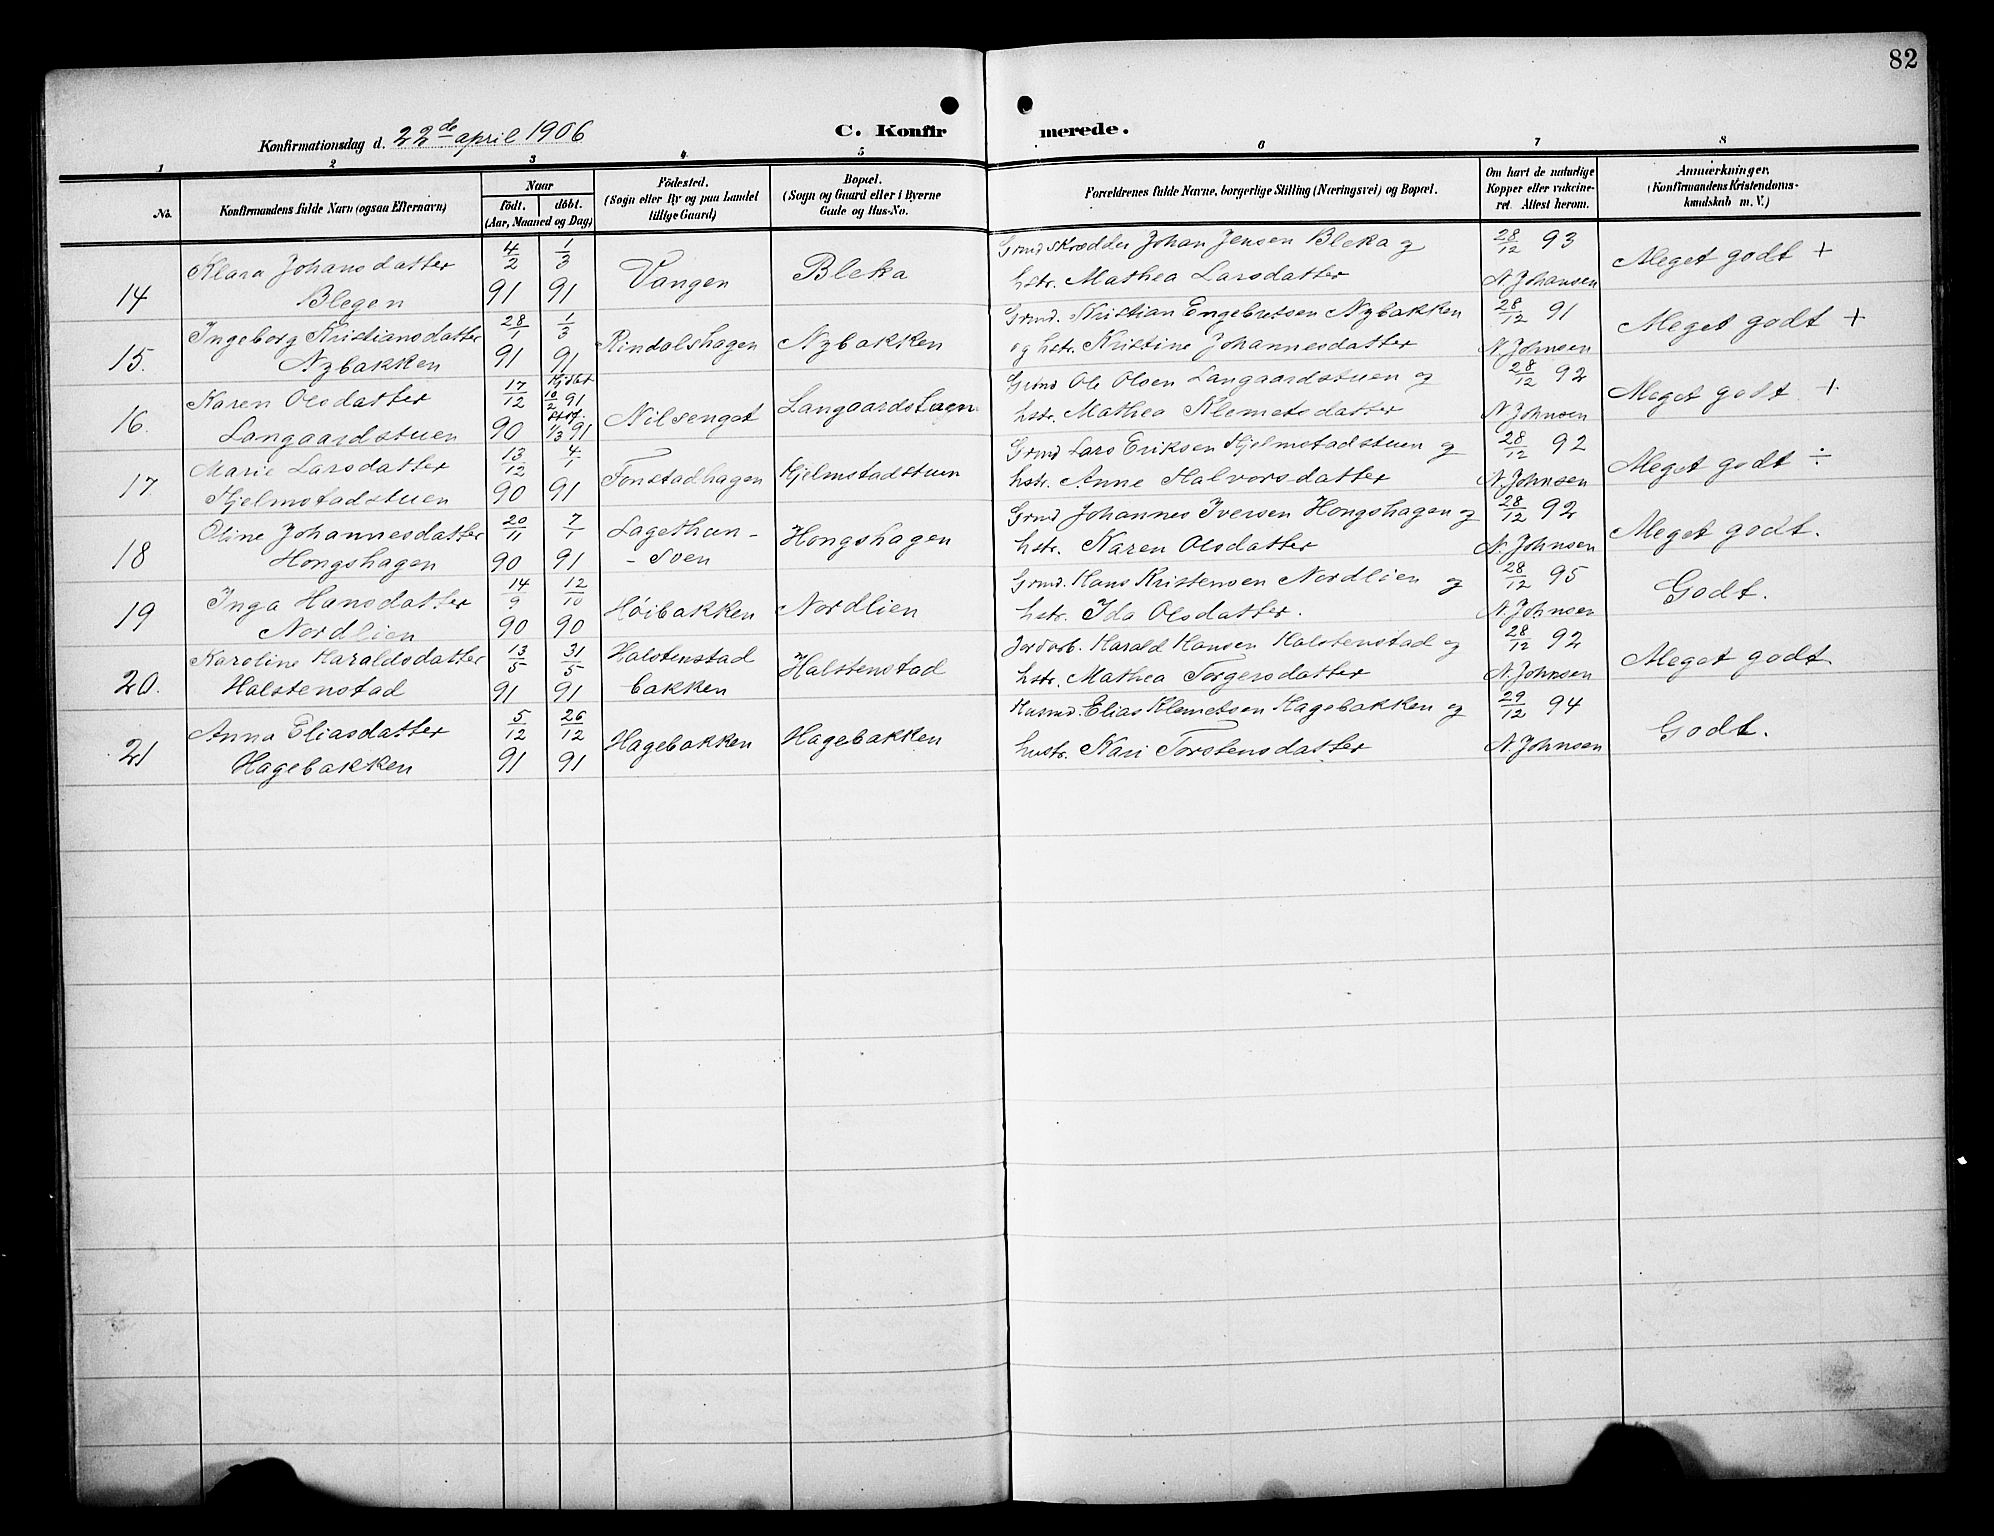 82
Konfirmationsdag d. 22de april 1906
C. Konfirmerede.
1 2 3 4 5 6 7 8
No.
Konfirmandens fulde Navn (ogsaa Efternavn)
Naar
födt. döbt.
(Aar, Maaned og Dag)
Födested.
(Sogn eller By og paa Landet
tillige Gaard)
Bopæl.
(Sogn og Gaard eller i Byerne
Gade og Hus-No.
Forældrenes fulde Navne, borgerlige Stilling (Næringsvei) og Bopæl.
Om havt de naturlige
Kopper eller vakcine-
ret. Attest herom.
Anmærkninger,
(Konfirmandens Kristendoms-
kundskab m. V.)
14 Klara Johansdatter
Blegen
4/2 91
1/3 91
Vangen
Bleka
Grmd. Skrædder Johan Jensen Bleka og
hstr. Mathea Larsdatter
28/12 93
N. Johansen
Meget godt +
15. Ingeborg Kristiansdatter
Nybakken
28/1 91
1/3 91
Rindalshagen
Nybakken
Grmd. Kristian Engebretsen Nybakken
og hstr. Kristine Johannesdatter
28/12 91
N. Johnsen
Meget godt +
16. Karen Olsdatter
Langaardstuen
17/12 90
Hjdbt
10/2 91
Stadf.
1/3 91
Nilsengst
Langaardstuen
Grmd Ole Olsen Langaardstuen og
hstr. Mathea Klemetsdatter
28/12 92
N. Johnsen
Meget godt +
17 Marie Larsdatter
Hjelmstadstuen
13/12 90
4/1 91
Tonstadhagen
Hjelmstadstuen
Grmd Lars Eriksen Hjelmstadstuen og
hstr. Anne Halvorsdatter
28/12 92
N. Johnsen
Meget godt ÷
18 Oline Johannesdatter
Hongshagen
20/11 90
7/1 91
Lagethun -
- sven
Hongshagen
Grmd Johannes Iversen Hongshagen og
hstr. Karen Olsdatter
28/12 92
N. Johnsen
Meget godt.
19 Inga Hansdatter
Nordlien
14/9 90
12/10 90
Høibakken
Nordlien
Grmd. Hans Kristensen Nordlien og
hstr. Ida Olsdatter.
28/12 95
N. Johnsen
Godt.
20. Karoline Haraldsdatter
Halstenstad
13/5 91
31/5 91
Halstenstad
bakken
Halstenstad
Jordarb. Harald Hansen Halstenstad og
hstr. Mathea Torgersdatter
28/12 92
N. Johnsen
Meget godt
21 Anna Eliasdatter
Hagebakken
5/12 91
26/12 91
Hagebakken
Hagebakken
Husmd. Elias Klemetsen Hagebakken og
hustr. Kari Torstensdatter
29/12 94
N. Johnsen
Godt.